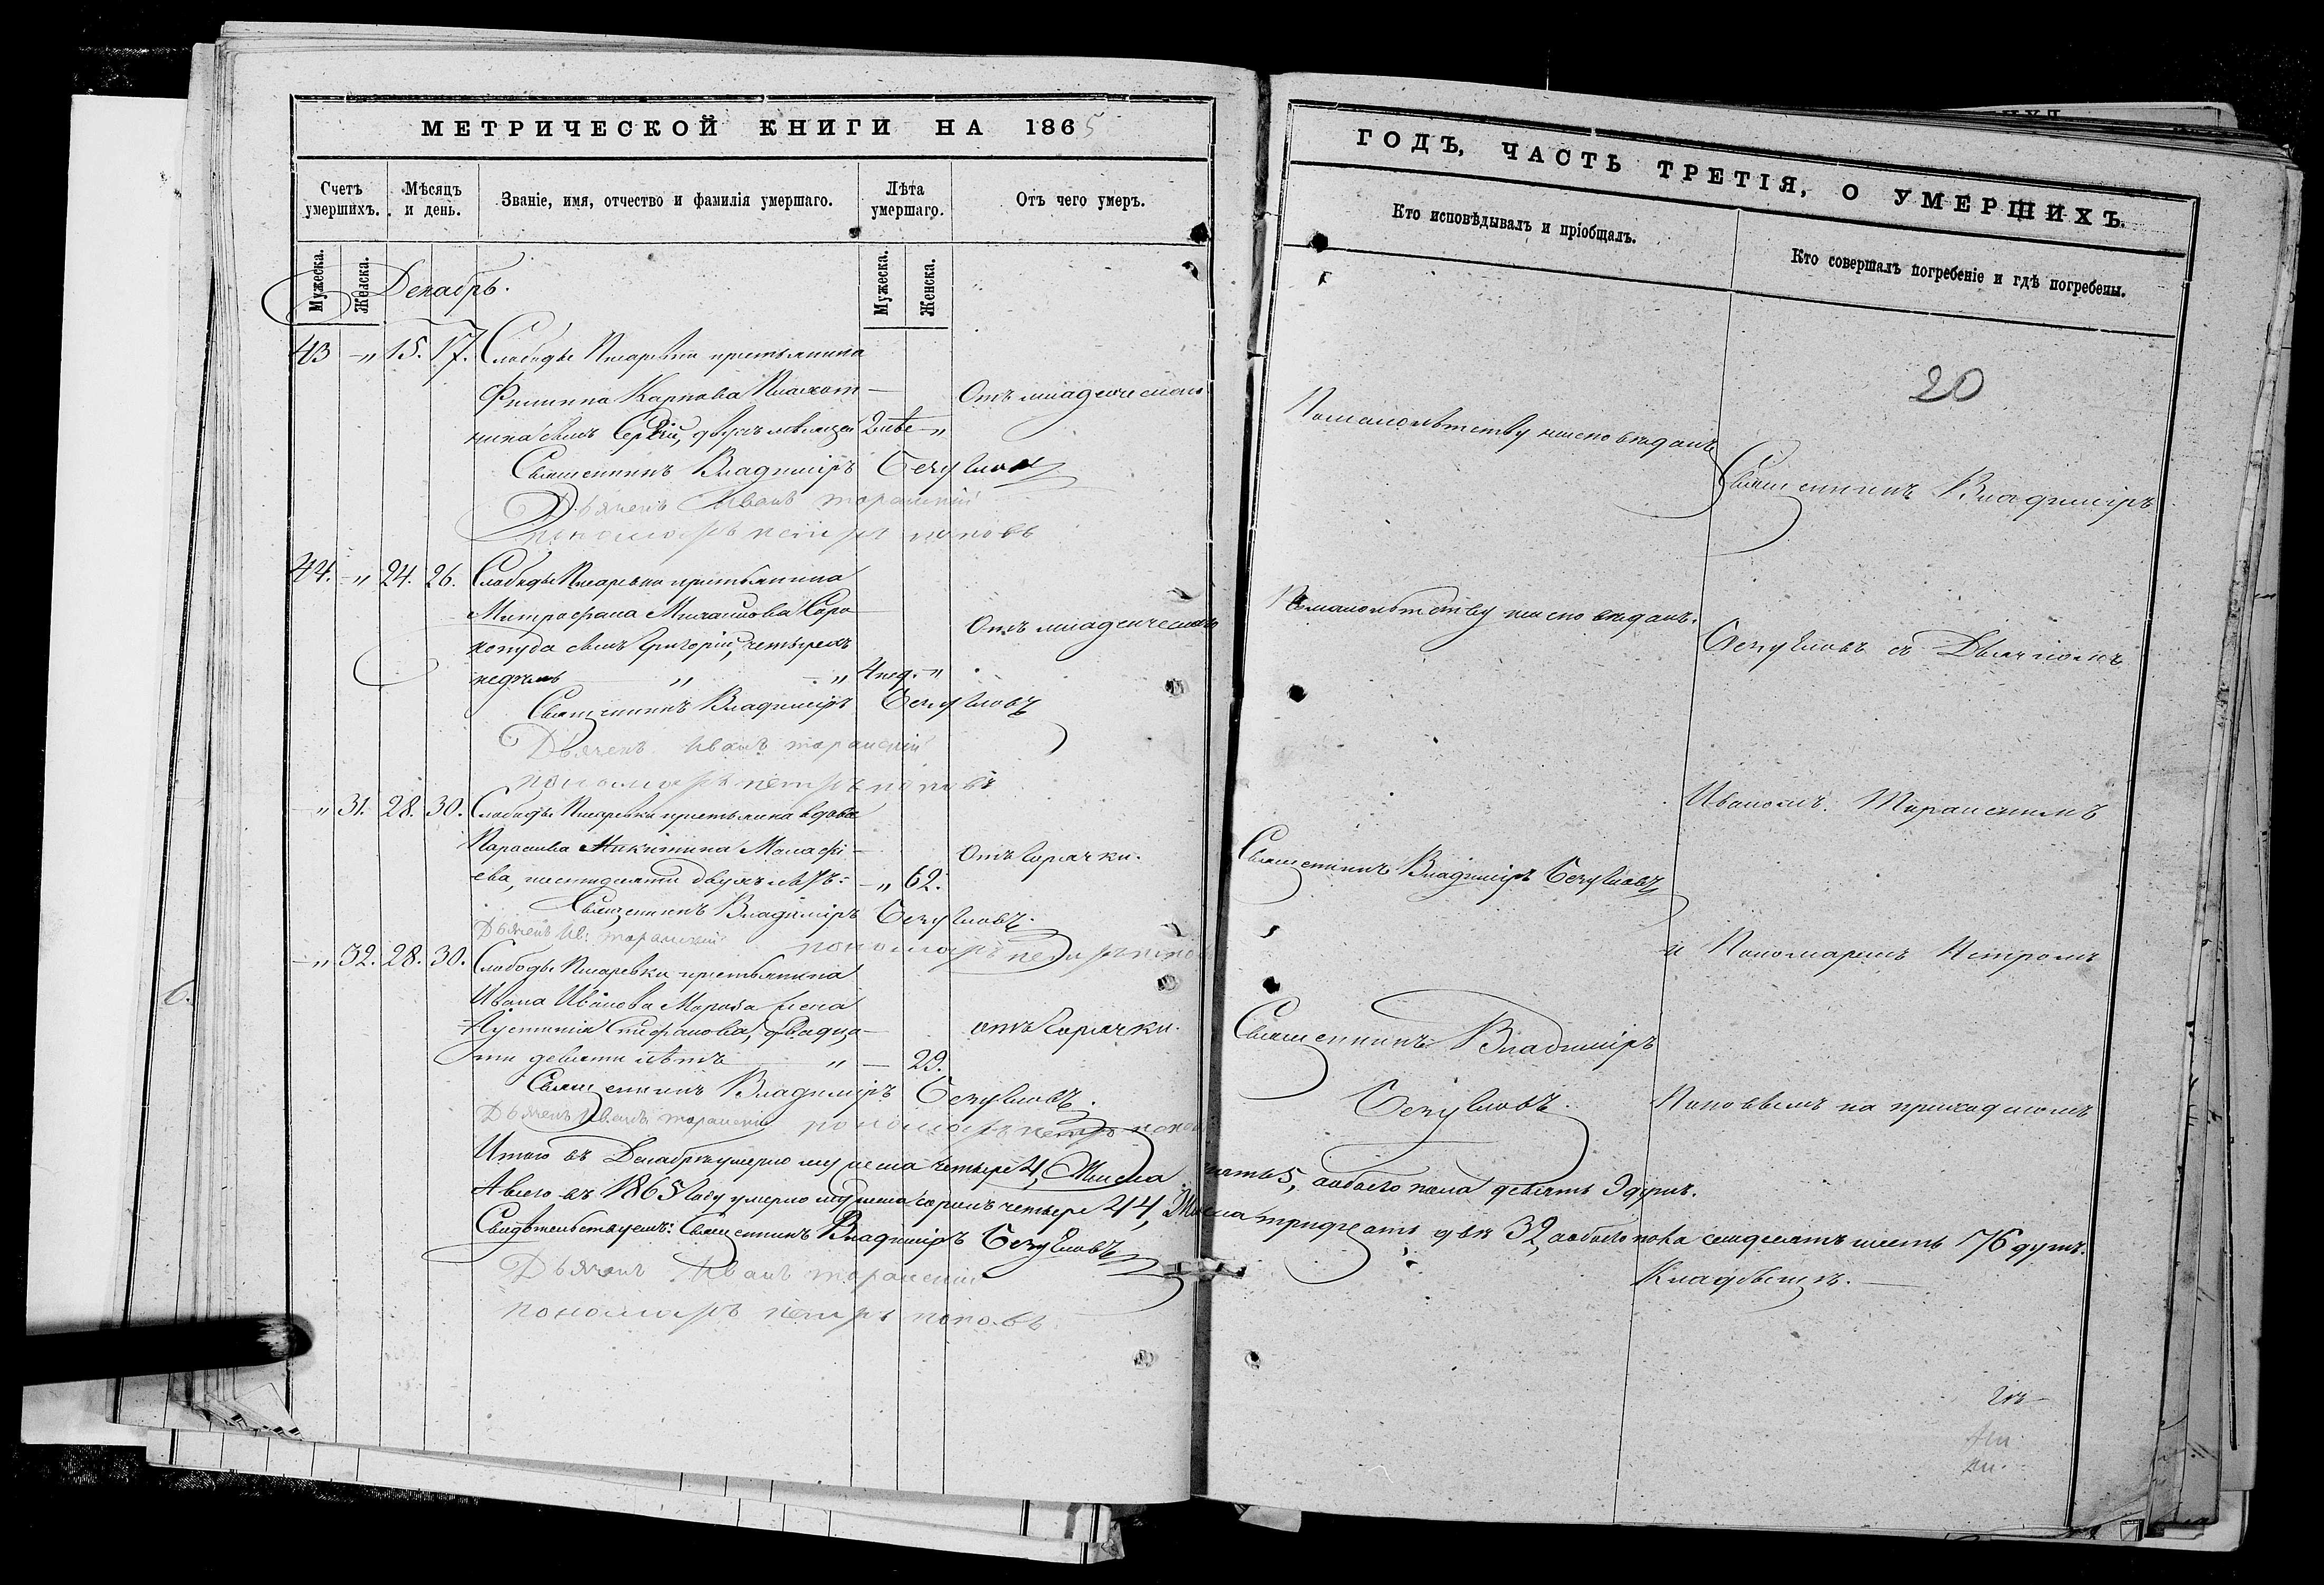 МЕТРИЧЕСКОЙ КНИГИ НА 1865
Счетъ умершихъ.
Мѣсяцъ и день.
Званіе, имя, отчество и фамилія умершаго.
Лѣта умершаго.
Отъ чего умеръ.
Мужеска.
Женска.
Мужеска.
Женска.
Декабрь.
43 -„ 15. 17. Слободы Писаревки крестьянина
Филиппа Карпова
сынъ Сергій, двухъ мѣсяцей „
Отъ младенческой
Священникъ Владиміръ
Дьячекъ Иванъ
пономарь петръ поповъ
44. -„ 24. 26. Слободы Писаревки крестьянина
Митрофана Михаилова
сынъ Григорій, четырехъ
недѣль „ „ 4 нед. „
Отъ младенческой
Священникъ Владиміръ
Дьячекъ Иванъ
пономарь петръ поповъ
„ 31. 28. 30. Слободы Писаревки крестьянка вдова
Параскева Никитина Малафі-
ева, шестидесяти двухъ лѣтъ: -„ 62.
Отъ горячки.
Священникъ Владиміръ
Дьячекъ Ив:
пономарь петръ
-„ 32. 28. 30. Слободы Писаревки крестьянина
Ивана Иванова Мороза жена
Іустинія Стефанова, двадца-
ти девяти лѣтъ „ — 29.
отъ горячки.
Священникъ Владиміръ
Дьячекъ Иванъ
пономарь петръ
Итого въ Декабрѣ умерло мужеска четыре 4, Женска пять 5, аобоего пола девять 9 душъ.
А всего въ 1865 году умерло мужеска сорокъ четыре 44, Женска тридцать двѣ 32, аобоего пола семдесятъ шесть 76 душъ.
Свидѣтельствуемъ: Священникъ Владиміръ
Дьячекъ Иванъ
пономарь петръ поповъ
ГОДЪ, ЧАСТЬ ТРЕТІЯ, О УМЕРШИХЪ.
Кто исповѣдывалъ и пріобщалъ.
Кто совершалъ погребеніе и гдѣ погребены.
20
Помалолѣтству неисповѣданъ
Священникъ Владиміръ
Помалолѣтству неисповѣданъ.
съ Дьячкомъ
Иваномъ
Священникъ Владиміръ
и Пономаремъ Петромъ
Священникъ Владиміръ
Поповымъ на приходскомъ
Кладбищѣ.